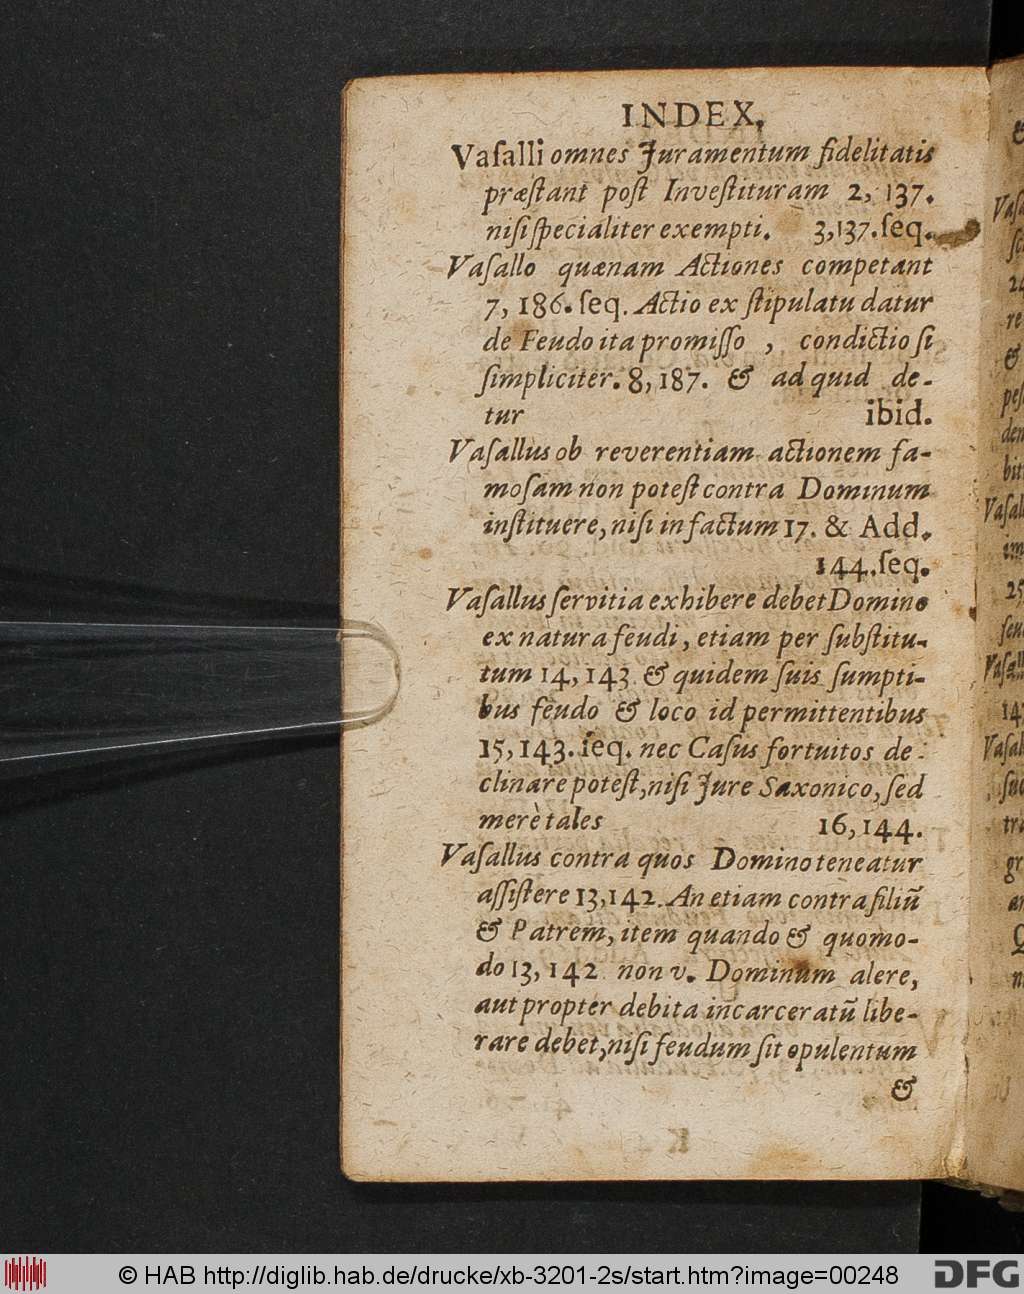 INDEX,
Vaſalli omnes Juramentum fidelitatis
præſtant poſt Inveſtituram 2, 137.
niſi ſpecialiter exempti. 3,137.ſeq.
Vaſallo quænam Actiones competant
7, 186. ſeq. Actio ex ſtipulatu datur
de Feudo ita promiſſo , condictio ſi
ſimpliciter. 8, 187. & ad quid de-
tur ibid.
Vaſallus ob reverentiam actionem fa-
moſam non poteſt contra Dominum
inſtituere, niſi in factum 17. & Add.
144.ſeq.
Vaſallus ſervitia exhibere debet Domino
ex natura feudi, etiam per ſubſtitu-
tum 14, 143 & quidem ſuis ſumpti-
bus feudo & loco id permittentibus
15, 143. ſeq. nec Caſus fortuitos de-
clinare poteſt, niſi Jure Saxonico, ſed
merè tales 16, 144.
Vaſallus contra quos Domino teneatur
aſſiſtere 13,142. An etiam contra filiū
& Patrem, item quando & quomo-
do 13, 142 non v. Dominum alere,
aut propter debita incarceratū libe-
rare debet, niſi feudum ſit opulentum
&
© HAB http://diglib.hab.de/drucke/xb-3201-2s/start.htm?image=00248
DFG